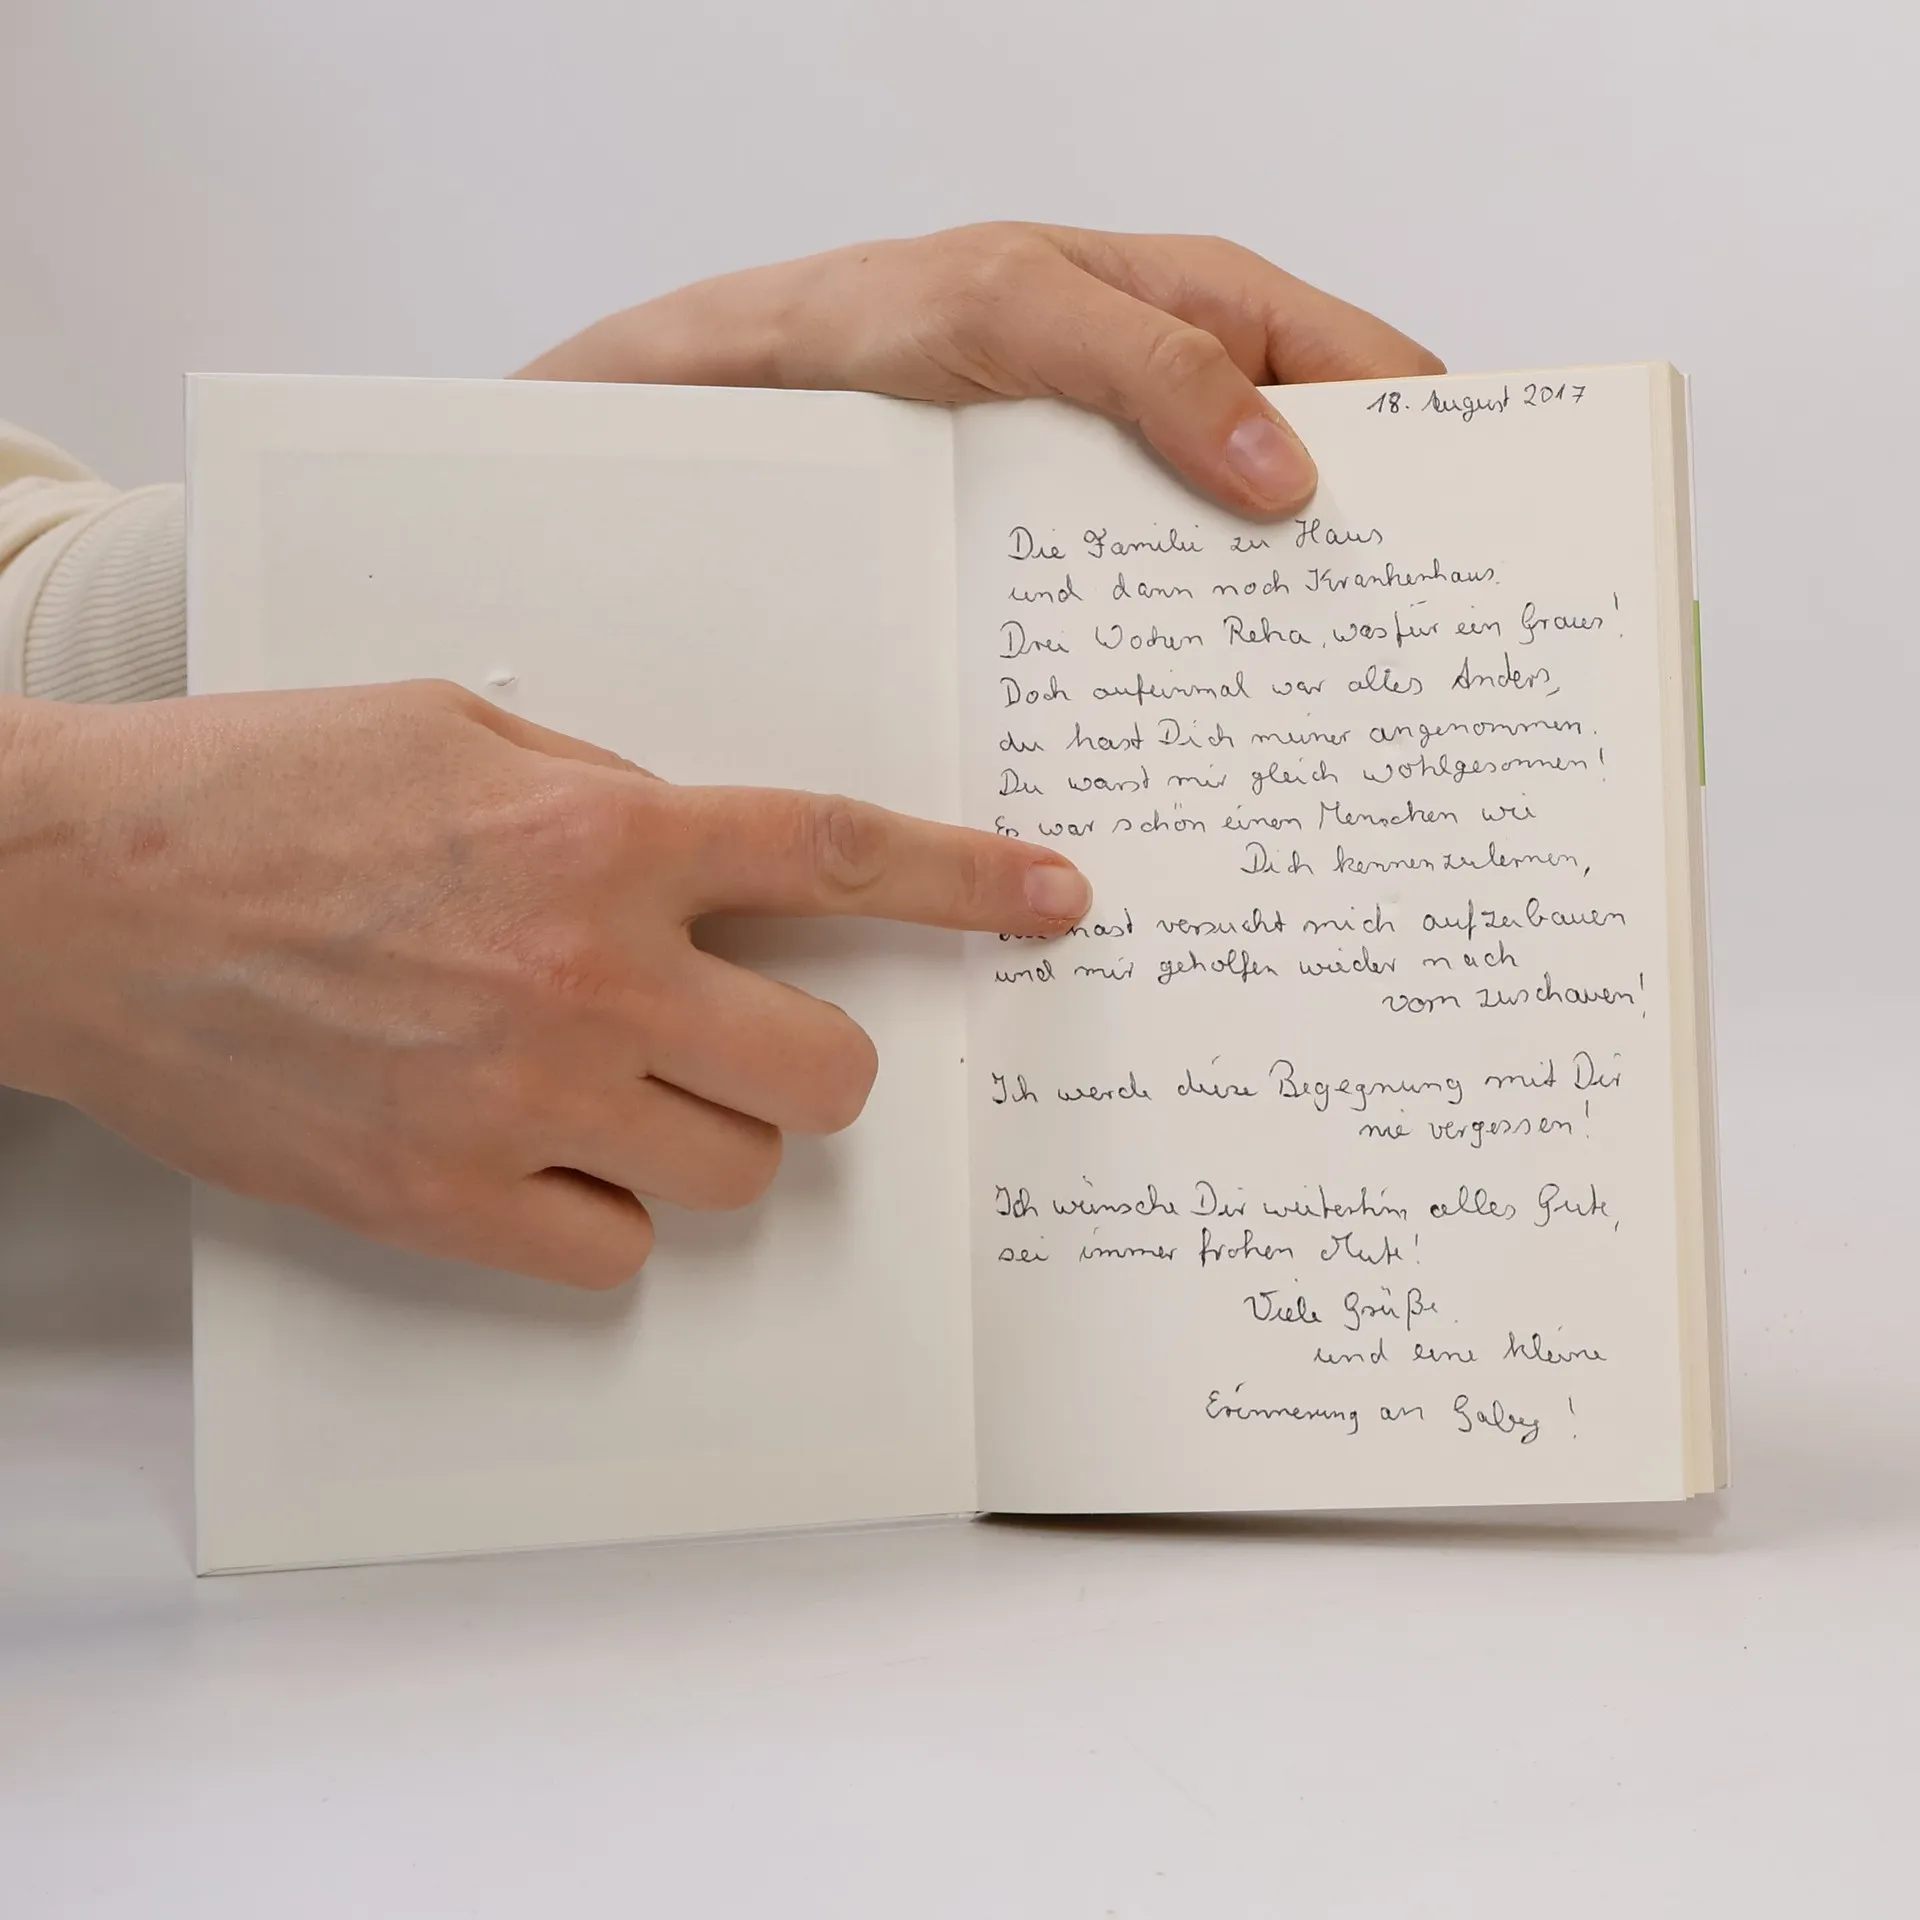 18. August 2017
Die Familie zu Haus
und dann noch Krankenhaus.
Drei Wochen Reha, was für ein Graus!
Doch aufeinmal war alles Anders,
du hast Dich meiner angenommen.
Du warst mir gleich wohlgesonnen!
Es war schön einen Menschen wie
Dich kennenzulernen,
hast versucht mich aufzubauen
und mir geholfen wieder nach
vorn zuschauen!
Ich werde diese Begegnung mit Dir
nie vergessen!
Ich wünsche Dir weiterhin alles Gute,
sei immer frohen Mute!
Viele Grüße
und eine kleine
Erinnerung an Gaby!